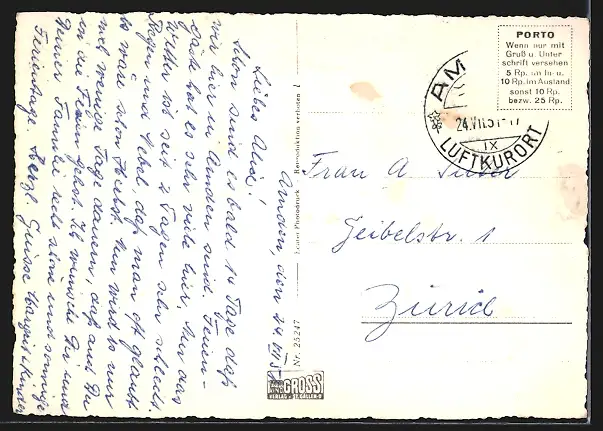 Amden, den 24. VII. 51
Liebes Alice!
Schon sind es bald 14 Tage daß
wir hier in Amden sind. Ferien-
gäste hat es sehr viele hier. Nur das
Wetter ist seit 2 Tagen sehr schlecht.
Regen und Nebel, daß man oft glaubt
es wäre schon Herbst. Nun wird es nur
noch wenige Tage dauern, daß auch Du
in die Ferien gehst. Ich wünsche Dir und
Deiner Familie recht schöne und sonnige
Ferientage. Herzl. Grüsse
Echte Photodruck Reproduktion verboten
Nr. 25247
GROSS
VERLAG ST. GALLEN
PORTO
Wenn nur mit
Gruß u. Unter
schrift versehen
5 Rp. im In- u.
10 Rp. im Ausland
sonst 10 Rp.
bezw. 25 Rp.
AM
24.VII.51-17
IX
LUFTKURORT
Frau A.
Geibelstr. 1
Zürich